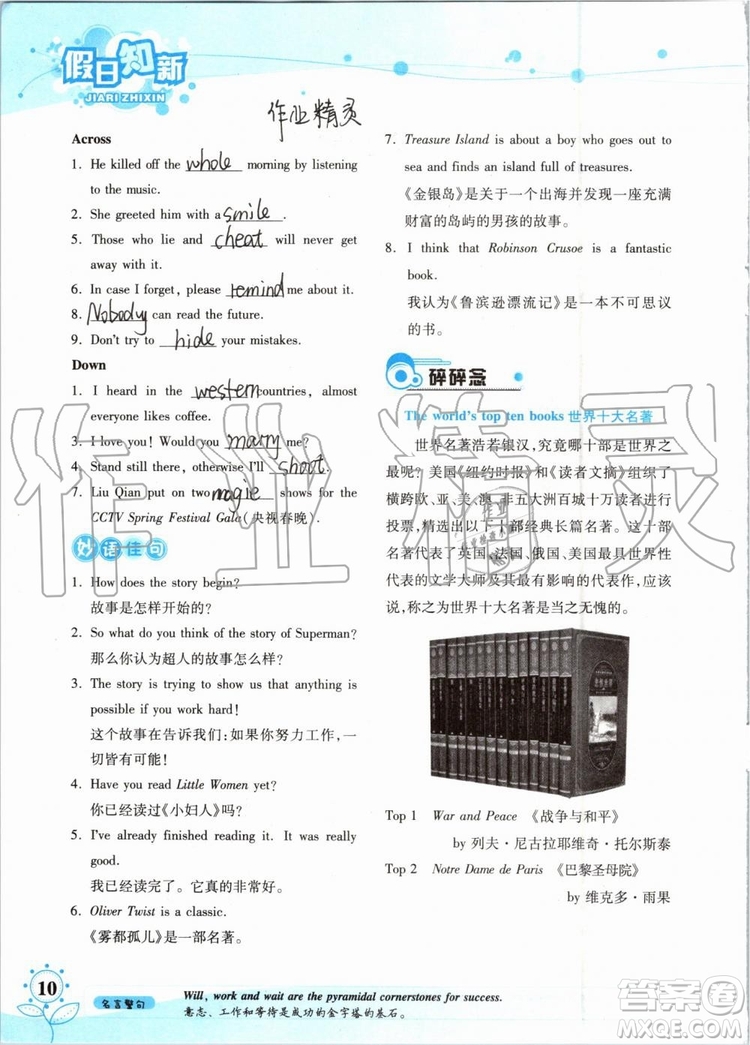 假日知新
JIARI ZHIXIN
作业精灵
Across
1. He killed off the whole morning by listening
to the music.
2. She greeted him with a smile.
5. Those who lie and cheat will never get
away with it.
6. In case I forget, please remind me about it.
8. Nobody can read the future.
9. Don't try to hide your mistakes.
Down
1. I heard in the western countries, almost
everyone likes coffee.
3. I love you! Would you marry me?
4. Stand still there, otherwise I'll shoot.
7. Liu Qian put on two magic shows for the
CCTV Spring Festival Gala(央视春晚).
妙语佳句
1. How does the story begin?
故事是怎样开始的?
2. So what do you think of the story of Superman?
那么你认为超人的故事怎么样?
3. The story is trying to show us that anything is
possible if you work hard!
这个故事在告诉我们:如果你努力工作,一
切皆有可能!
4. Have you read Little Women yet?
你已经读过《小妇人》吗?
5. I've already finished reading it. It was really
good.
我已经读完了。它真的非常好。
6. Oliver Twist is a classic.
《雾都孤儿》是一部名著。
7. Treasure Island is about a boy who goes out to
sea and finds an island full of treasures.
《金银岛》是关于一个出海并发现一座充满
财富的岛屿的男孩的故事。
8. I think that Robinson Crusoe is a fantastic
book.
我认为《鲁滨逊漂流记》是一本不可思议
的书。
碎碎念
The world's top ten books 世界十大名著
世界名著浩若银汉,究竟哪十部是世界之
最呢?美国《纽约时报》和《读者文摘》组织了
横跨欧、亚、美、澳、非五大洲百城十万读者进行
投票,精选出了十部经典长篇名著。这十部
名著代表了英国、法国、俄国、美国最具世界性
代表的文学大师及其最有影响的代表作,应该
说,称之为世界十大名著是当之无愧的。
Top 1 War and Peace 《战争与和平》
by 列夫·尼古拉耶维奇·托尔斯泰
Top 2 Notre Dame de Paris 《巴黎圣母院》
by 维克多·雨果
10
名言警句
Will, work and wait are the pyramidal cornerstones for success.
意志、工作和等待是成功的金字塔的基石。
作业精灵
答案圈
MXQE.COM